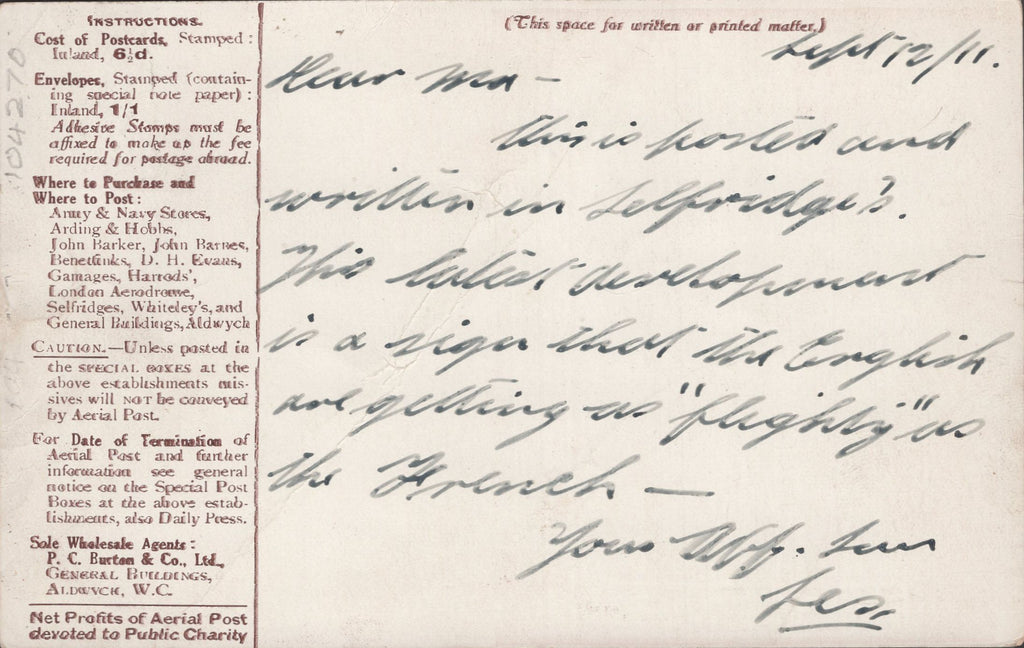 INSTRUCTIONS.
Cost of Postcards, Stamped:
Inland, 6½d.
Envelopes, Stamped (contain-
ing special note paper):
Inland, 1/1
Adhesive Stamps must be
affixed to make up the fee
required for postage abroad.
Where to Purchase and
Where to Post:
Army & Navy Stores,
Arding & Hobbs,
John Barker, John Barnes,
Benetfinks, D. H. Evans,
Gamages, Harrods',
London Aerodrome,
Selfridges, Whiteley's, and
General Buildings, Aldwych
CAUTION.—Unless posted in
the SPECIAL BOXES at the
above establishments mis-
sives will NOT be conveyed
by Aerial Post.
For Date of Termination of
Aerial Post and further
information see general
notice on the Special Post
Boxes at the above estab-
lishments, also Daily Press.
Sole Wholesale Agents:
P. C. Burton & Co., Ltd.,
GENERAL BUILDINGS,
ALDWYCH, W.C.
Net Profits of Aerial Post
devoted to Public Charity
(This space for written or printed matter.)
Sept 12/11.
Dear Ma –
This is posted and
written in Selfridge's.
This latest development
is a sign that the English
are getting as "flighty" as
the French —
Your Aff. Son
Les.
104270